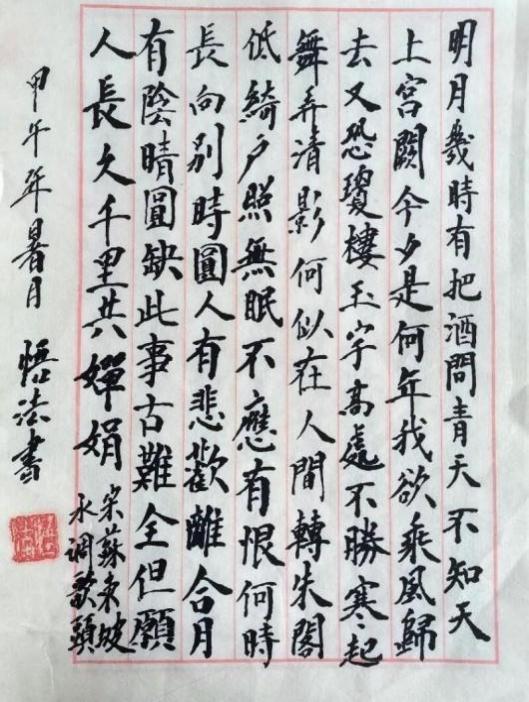 明月幾時有把酒問青天不知天
上宮闕今夕是何年我欲乘風歸
去又恐瓊樓玉宇高處不勝寒起
舞弄清影何似在人間轉朱閣
低綺户照無眠不應有恨何時
長向別時圓人有悲歡離合月
有陰晴圓缺此事古難全但願
人長久千里共嬋娟
宋蘇東坡
水调歌頭
甲午年暑月 悟法書